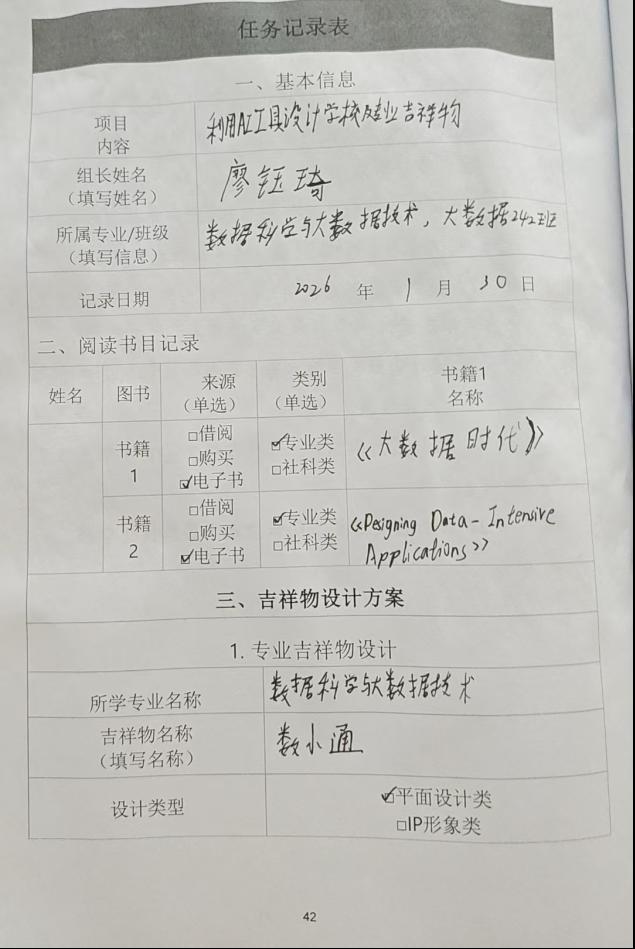 任务记录表
一、基本信息
项目
内容
利用AI工具设计学校及专业吉祥物
组长姓名
（填写姓名）
廖钰琦
所属专业/班级
（填写信息）
数据科学与大数据技术，大数据242班
记录日期
2026 年 1 月 30 日
二、阅读书目记录
姓名
图书
来源
（单选）
类别
（单选）
书籍1
名称
书籍
1
□借阅
□购买
☑电子书
☑专业类
□社科类
《大数据时代》
书籍
2
□借阅
□购买
☑电子书
☑专业类
□社科类
《Designing Data-Intensive
Applications》
三、吉祥物设计方案
1. 专业吉祥物设计
所学专业名称
数据科学与大数据技术
吉祥物名称
（填写名称）
数小通
设计类型
☑平面设计类
□IP形象类
42